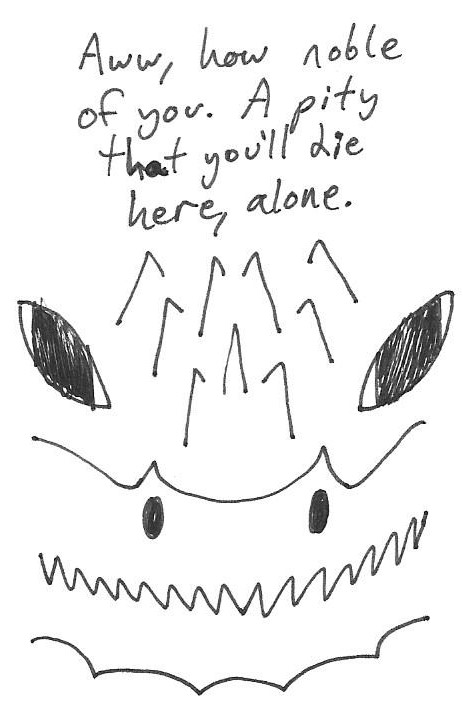 Aww, how noble
of you. A pity
that you'll die
here, alone.